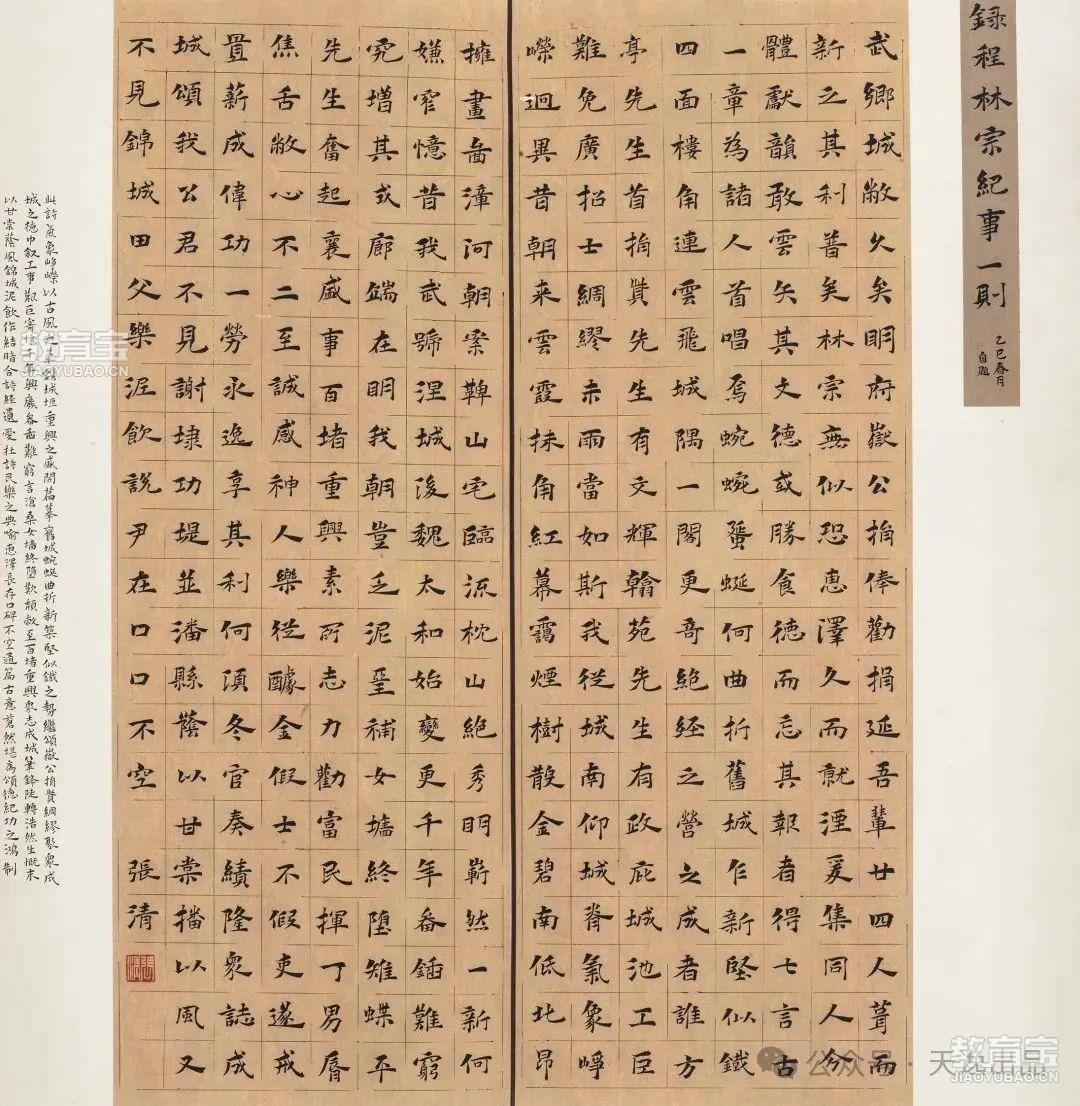 録程林宗紀事一則
乙巳春月
自題
武鄉城敝久矣明府嶽公捐俸勸捐延吾輩廿四人葺而
新之其利普矣林宗無似恐惠澤久而就湮爰集同人分
體獻韻敢雲矢其文德或勝食德而忘其報者得七言古
一章為諸人首唱焉蜿蜿蜑蜒何曲折舊城乍新堅似鐵
四面樓角連雲飛城隅一閣更奇絕經之營之成者誰方
亭先生首捐貲先生有文輝翰苑先生有政庇城池工巨
難免廣招士綢繆未雨當如斯我從城南仰城脊氣象崢
嶸迥異昔朝來雲霞抹角紅暮靄煙樹散金碧南低北昂
擁畫啚漳河朝縈鞞山宅臨流枕山絕秀明嶄然一新何
嫌窄憶昔我武號涅城後魏太和始變更千年畚鍤難窮
究增其式廓端在明我朝豈乏泥璽補女墻終墮雉蝶平
先生奮起襄盛事百堵重興素所志力勸富民揮丁男脣
焦舌敝心不二至誠感神人樂從醵金假士不假吏遂戒
薪成偉功一勞永逸享其利何須冬官奏績隆眾誌成
城頌我公君不見謝埭功堤並潘縣蔭以甘棠播以風又
不見錦城田父樂泥飲說尹在口口不空 張清
此詩氣象崢嶸以古風之筆敘城垣重興之盛開篇摹舊城蜿蜒曲折新築堅似鐵之勢繼頌嶽公捐貲綢繆聚眾成
城之德中敘工事艱巨寄千年興廢畚臿難窮言滄桑女墻終墮歎頹敝至百堵重興眾志成城筆鋒陡轉浩然生慨末
以甘棠蔭風錦城泥飲作結暗合詩經遺愛杜詩民樂之典喻惠澤長存口碑不空通篇古意蒼然堪為頌德紀功之鴻制
教育宝
JIAOYUBAO.CN
公众号·天逸出品
教育宝
JIAOYUBAO.CN